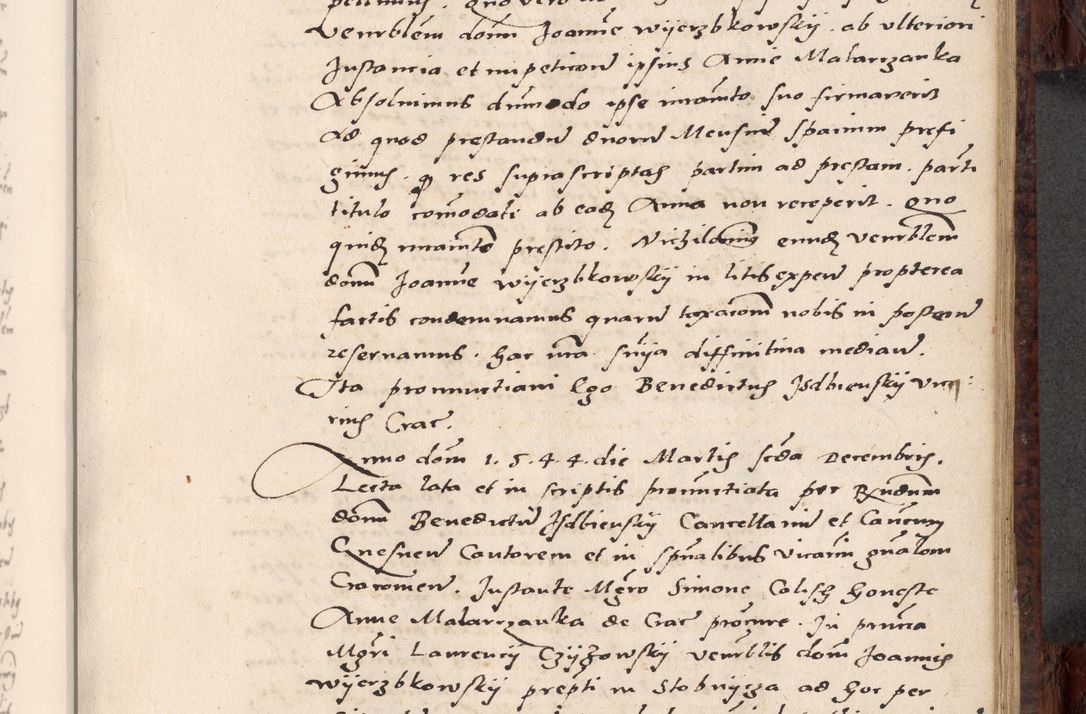 venrblem domi Joanne Wijerzbkowskij . ab ulteriori
Instancia et impeticone ipsius Anne Malarzanka
Absoluimus dummodo ipse iuramto suo firmaverit
Ad quod prestandu duorum Mensiu spacium prefi
gimus . q res suprascriptas partim ad prestam . parti
titulo comodati ab eadz Anna non receperit . Quo
quidz iuramto prestito . Nichilominus eundz Venrblem
donu Joanne Wijerzbkowskij in litis expen propterea
factis condemnamus quaru taxacom nobis in posteru
reservamus . hac nra snia diffinitiva mediane .
Ita pronunctiavi Ego Benedictus Jsdbienskij Vica
rius Crac .
Anno domi 1.5.4.4. die Martis scda Decembris .
Lecta lata et in scriptis pronunctiata per Rndum
donu Benedictu Jsdbienskij Cancellariu et Cancum
Gnesnen Cantorem et in spualibus vicariu gnalem
Cracovien . Instante Mgro Simone Calisz honeste
Anne Malarzanka de Crac procure . In pnncia
Mgri Laurencij Czijzowskij venrblis domi Joannis
Wijerzbkowskij prepti in Stobnijcza ad hoc per